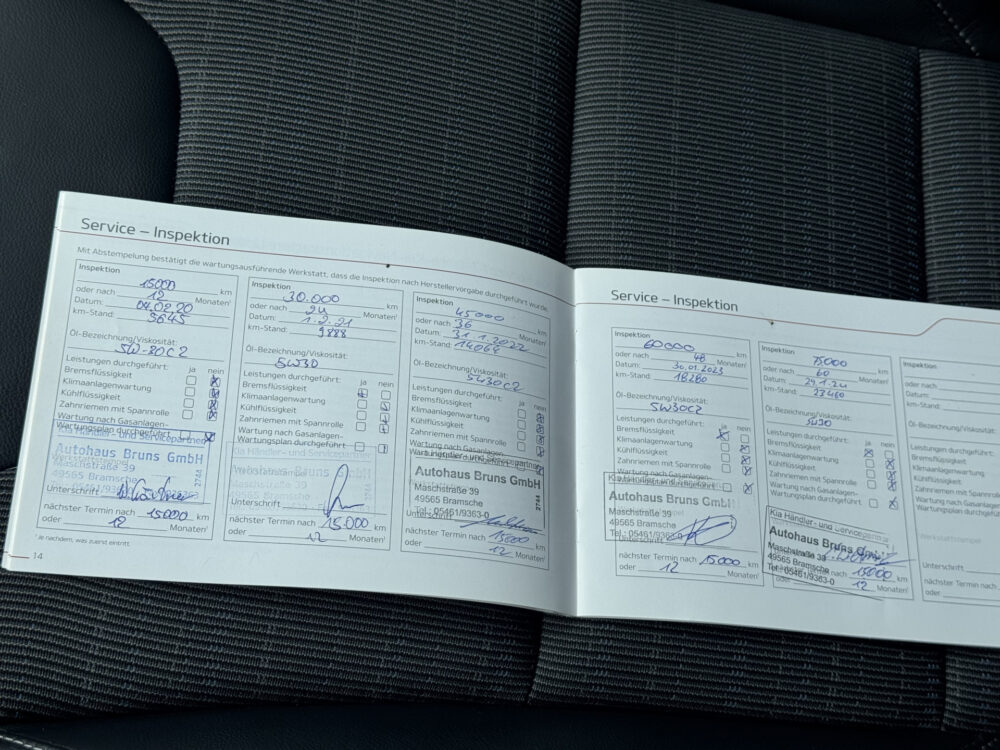 Service – Inspektion
Mit Abstempelung bestätigt die wartungsausführende Werkstatt, dass die Inspektion nach Herstellervorgabe durchgeführt wurde.
Inspektion
15000 km
oder nach 12 Monaten¹
Datum: 04.02.20
km-Stand: 5645
Öl-Bezeichnung/Viskosität:
5W-20C2
Leistungen durchgeführt: ja nein
Bremsflüssigkeit
Klimaanlagenwartung
Kühlflüssigkeit
Zahnriemen mit Spannrolle
Wartung nach Gasanlagen-
Wartungsplan durchgeführt
Kia Händler- und Servicepartner
Autohaus Bruns GmbH
Maschstraße 39
49565 Bramsche
2744
Unterschrift
nächster Termin nach 15000 km
oder 12 Monaten¹
¹ Je nachdem, was zuerst eintritt.
14
Inspektion
30.000 km
oder nach 24 Monaten¹
Datum: 1.2.21
km-Stand: 9888
Öl-Bezeichnung/Viskosität:
5W30
Leistungen durchgeführt: ja nein
Bremsflüssigkeit
Klimaanlagenwartung
Kühlflüssigkeit
Zahnriemen mit Spannrolle
Wartung nach Gasanlagen-
Wartungsplan durchgeführt
Kia Händler- und Servicepartner
Unterschrift
nächster Termin nach 15.000 km
oder 12 Monaten¹
Inspektion
45000 km
oder nach 36 Monaten¹
Datum: 31.1.2022
km-Stand: 14064
Öl-Bezeichnung/Viskosität:
5W30C2
Leistungen durchgeführt: ja nein
Bremsflüssigkeit
Klimaanlagenwartung
Kühlflüssigkeit
Zahnriemen mit Spannrolle
Wartung nach Gasanlagen-
Autohaus Bruns GmbH
Maschstraße 39
49565 Bramsche
Tel.: 05461/9363-0
2744
Unterschrift
nächster Termin nach 15000 km
oder 12 Monaten¹
Service – Inspektion
Inspektion
60000 km
oder nach 48 Monaten¹
Datum: 30.01.2023
km-Stand: 18280
Öl-Bezeichnung/Viskosität:
5W30C2
Leistungen durchgeführt: ja nein
Bremsflüssigkeit
Klimaanlagenwartung
Kühlflüssigkeit
Zahnriemen mit Spannrolle
Wartung nach Gasanlagen-
Autohaus Bruns GmbH
Maschstraße 39
49565 Bramsche
Tel.: 05461/9363-0
Unterschrift
nächster Termin nach 15000 km
oder 12 Monaten¹
Inspektion
75000 km
oder nach 60 Monaten¹
Datum: 29.1.24
km-Stand: 23460
Öl-Bezeichnung/Viskosität:
5W30
Leistungen durchgeführt: ja nein
Bremsflüssigkeit
Klimaanlagenwartung
Kühlflüssigkeit
Zahnriemen mit Spannrolle
Wartung nach Gasanlagen-
Wartungsplan durchgeführt
Kia Händler- und Servicepartner
Autohaus Bruns GmbH
Maschstraße 39
49565 Bramsche
Tel.: 05461/9363-0
nächster Termin nach 15000 km
oder 12 Monaten¹
Inspektion
oder nach
Datum:
km-Stand:
Öl-Bezeichnung/Viskosität:
Leistungen durchgeführt:
Bremsflüssigkeit
Klimaanlagenwartung
Kühlflüssigkeit
Zahnriemen mit Spannrolle
Wartung nach Gasanlagen-
Wartungsplan durchgeführt
Werkstattstempel
Unterschrift
nächster Termin nach
oder